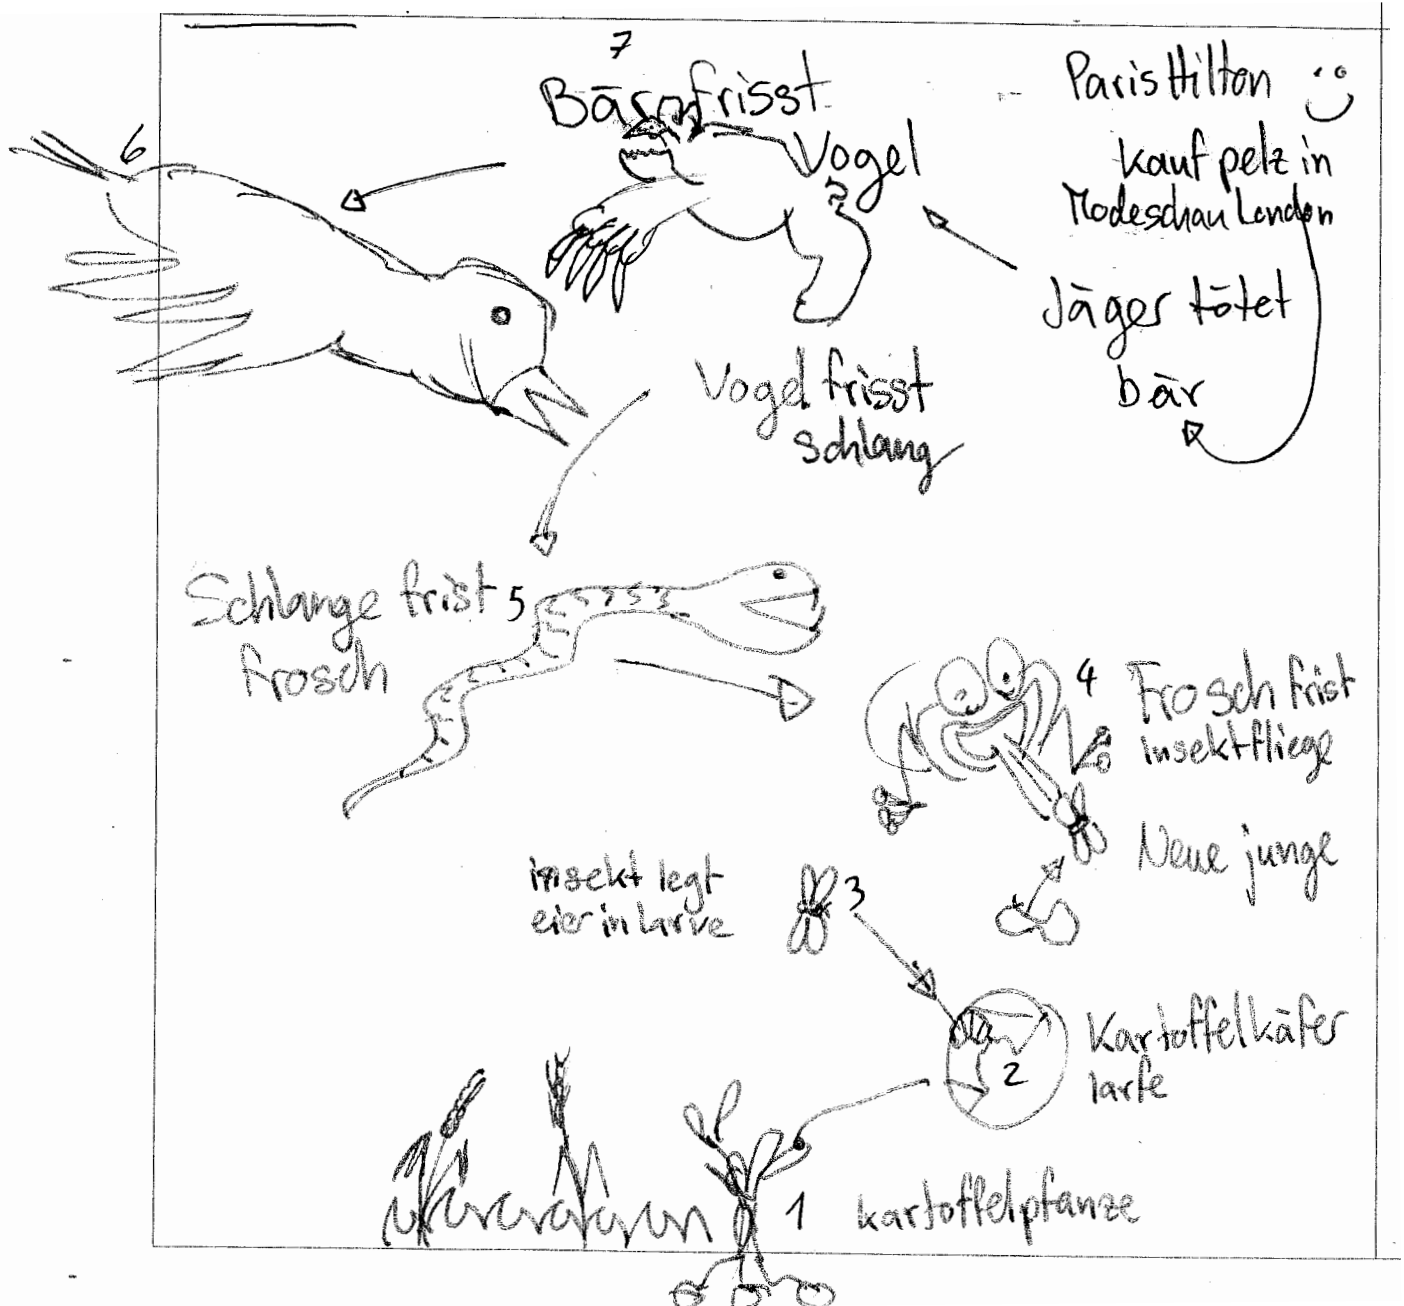 7
Bär frisst
Vogel
Paris Hilton
kauf pelz in
Modeschau London
Jäger tötet
bär
6
Vogel frisst
schlang
Schlange frist 5
frosch
4 Frosch frist
insektfliege
Neue junge
insekt legt
eier in larve
3
Kartoffelkäfer
larfe
2
1 kartoffelpfanze